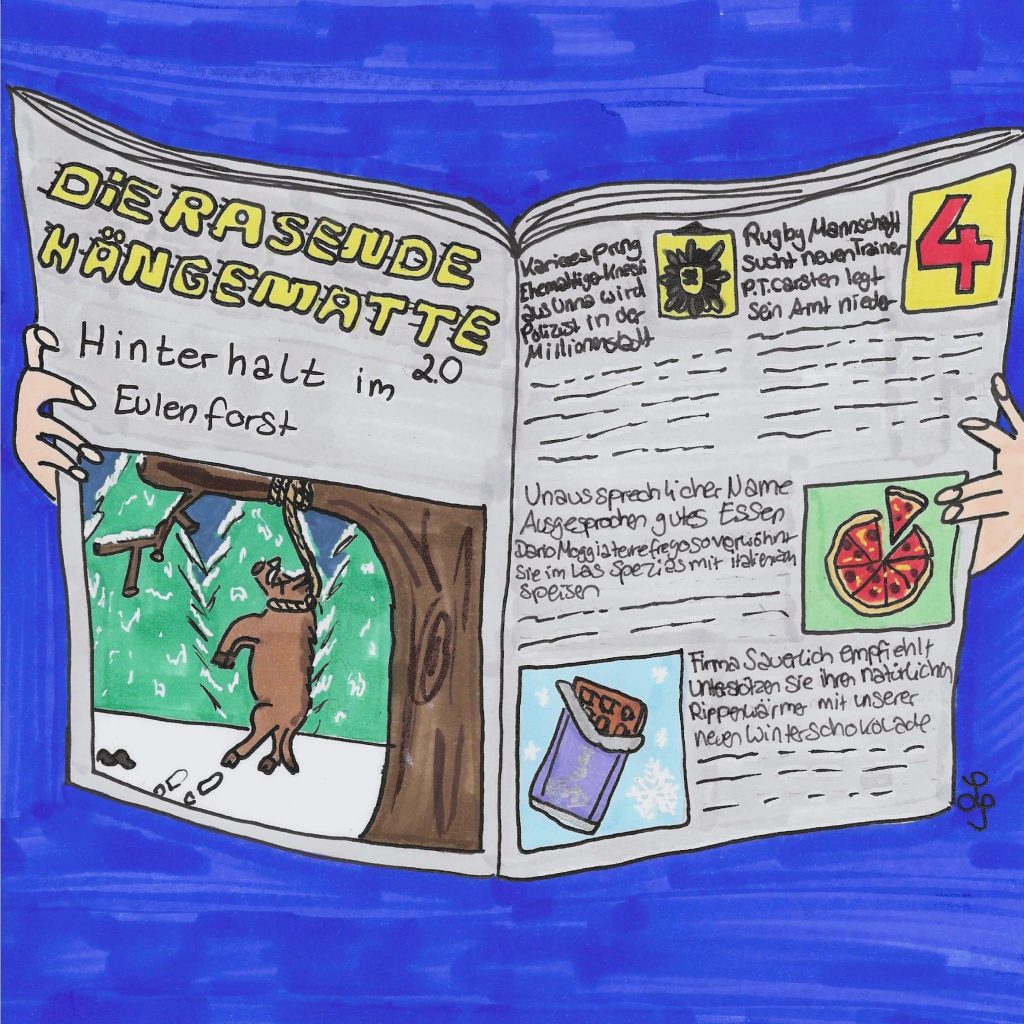 DiE RASENDE
HÄNGEMATTE
2.0
Hinterhalt im
Eulenforst
Karrieresprung
Ehemaliger Knecht
aus Unna wird
Polizist in der
Millionenstadt
Rugby Mannschaft
sucht neuen Trainer
P.T. Carsten legt
sein Amt nieder
4
Unaussprechlicher Name
Ausgesprochen gutes Essen
Dario verwöhnt
Sie im Las Spezias mit italienisch
Speisen
Firma Sauerlich empfiehlt
Unterstützen Sie ihren natürlichen
Rippenwärmer mit unserer
neuen Winterschokolade